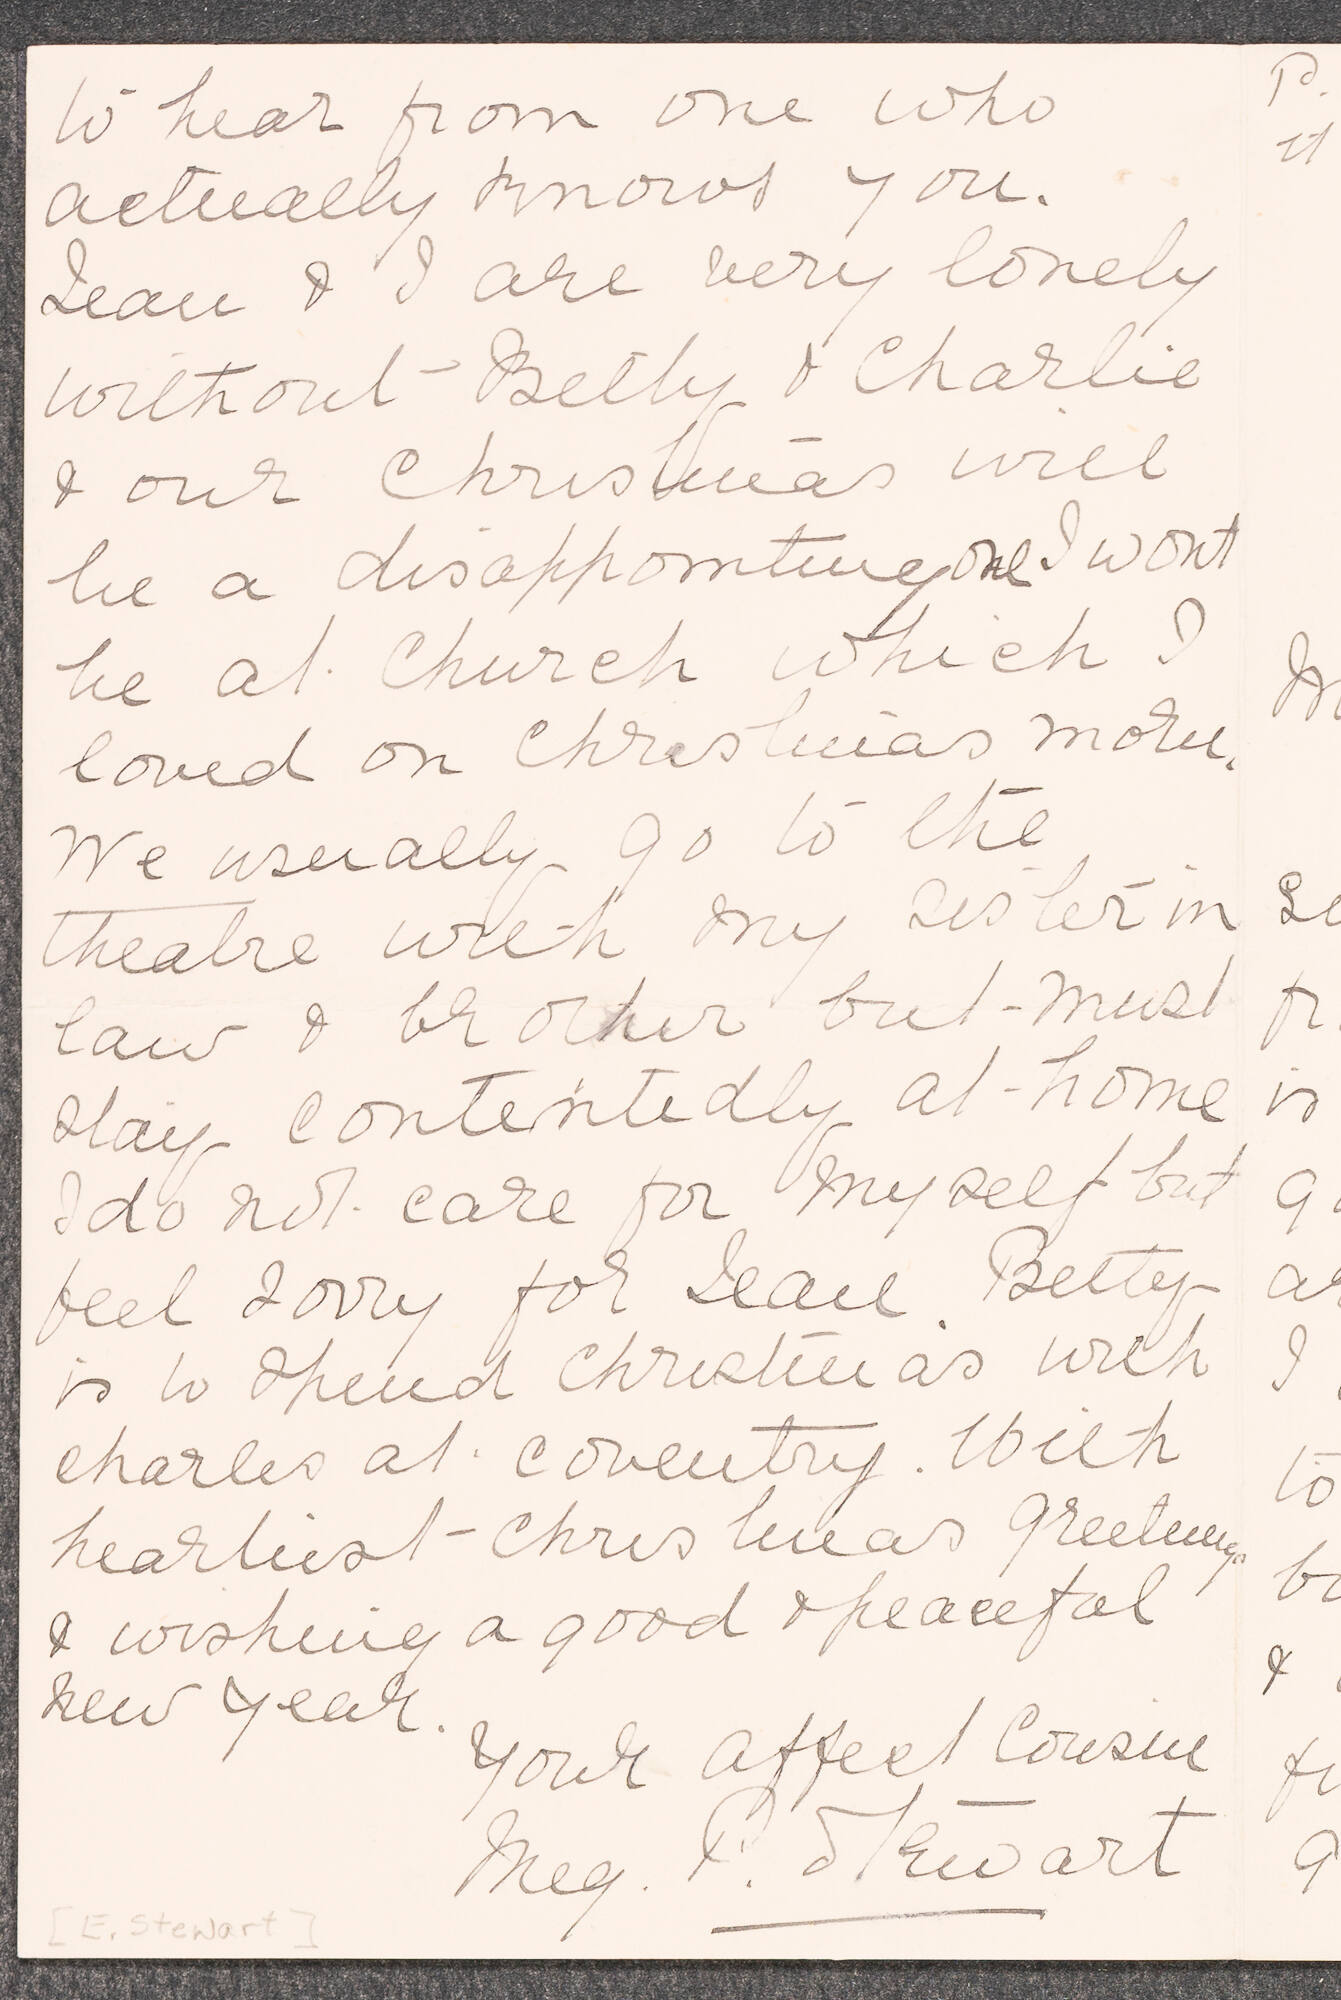 to hear from one who
actually knows you.
Jean & I are very lonely
without Betty & Charlie
& our Christmas will
be a disappointing one I wont
be at Church which I
loved on Christmas morn.
We usually go to the
theatre with my sister in
law & brother but must
stay contentedly at home
I do not care for myself but
feel sorry for Jean. Betty
is to spend Christmas with
Charles at Coventry. With
heartiest Christmas greetings
& wishing a good & peaceful
new year.
Your affect Cousin
Meg. P. Stewart
[E. Stewart]
P.
it
to
&
I
is